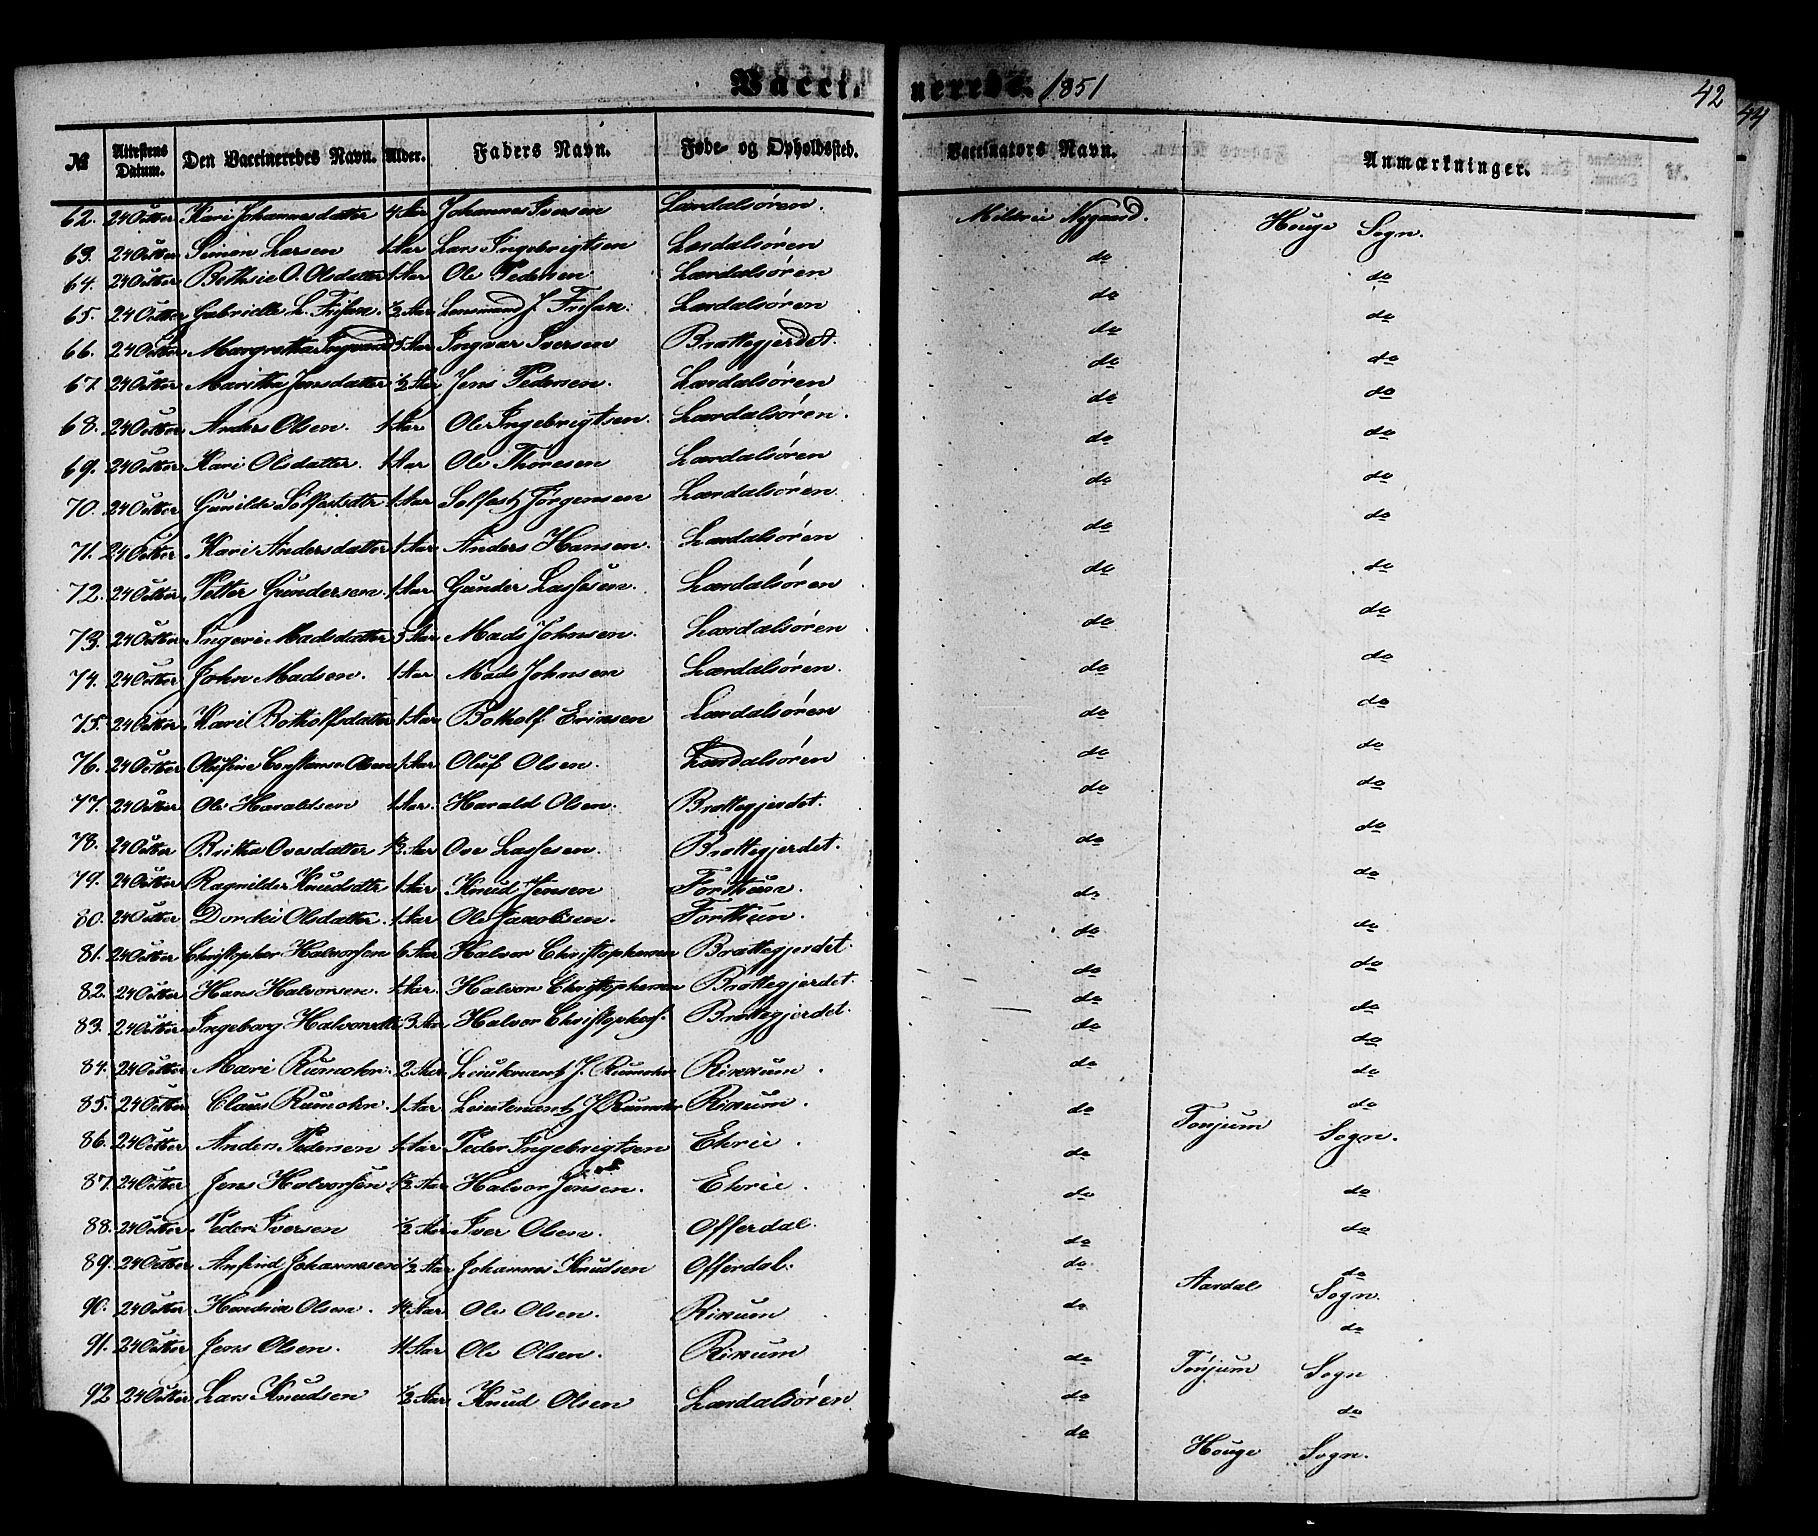 Vaccinerede. 1851
42
44
№ Attestens Datum. Den Vaccineredes Navn. Alder. Faders Navn. Føde- og Opholdssted. Vaccinators Navn. Anmærkninger.
62. 24 Octbr Kari Johannesdatter 4 Aar Johannes Iversen Lærdalsøren. Nygaard. Houge Sogn.
63. 24 Octbr Simon Larsen 1 Aar Lars Ingebrigtsen Lærdalsören do do
64. 24 Octbr Bothsie O. Olsdatter 1 Aar Ole Pedersen Lærdalsören do do
65. 24 Octbr Gabrielle L. Frisak. 1/2 Aar Lensmand J. Frisak. Lærdalsören do do
66. 24 Octbr Margretha 5 Aar Ingvar Iversen Brattegjerdet. do do
67. 24 Octbr Maritha Jensdatter 1/2 Aar Jens Pedersen. Lærdalsören do do
68. 24 Octbr Anders Olsen. 1 Aar Ole Ingebrigtsen. Lærdalsören. do do
69. 24 Octbr Kari Olsdatter. 1 Aar Ole Thoresen Lærdalsören do do
70. 24 Octbr Gunilde Solfestsdtr 1 Aar Solfest Jörgensen Lærdalsören. do do
71. 24 Octbr Kari Andersdatter 1 Aar Anders Hansen. Lærdalsören do do
72. 24 Octbr Petter Gundersen 1 Aar Gunder Lassesen. Lærdalsören do do
73. 24 Octbr Ingeri Madsdatter 3 Aar Mads Johnsen. Lærdalsören do do
74. 24 Octbr John Madsen. 1 Aar Mads Johnsen Lærdalsören. do do
75. 24 Octbr Kari Botholfsdatter 1 Aar Botholf Eriksen Lærdalsören do do
76. 24 Octbr Olufine Constanse Olsen 1 Aar Oluf Olsen. Lærdalsören do do
77. 24 Octbr Ole Haraldsen 1 Aar. Harald Olsen. Brattegjerdet. do do
78. 24 Octbr Britha Ovesdatter 1/2 Aar Ove Lassesen. Brattegjerdet. do do
79. 24 Octbr Ragnilde Knudsdtr 1 Aar Knud Jensen Forthun. do do
80. 24 Octbr Dorthe Olsdatter. 1 Aar Ole Jakobsen. Forthun. do do
81. 24 Octbr Christopher Halvorsen 6 Aar Halvor Christophersen Brattegjerdet. do do
82. 24 Octbr Hans Halvorsen. 1 Aar. Halvor Christophersen Brattegjerdet. do do
83. 24 Octbr Ingeborg Halvorsdtr 3 Aar Halvor Christophers. Brattegjerdet. do do
84. 24 Octbr Mari Rumohr. 2 Aar Lieutenant J. Rumohr Rikkum. do do
85. 24 Octbr Claus Rumohr. 1 Aar Lieutenant J. Rumohr Rikum. do do
86. 24 Octbr Anders Pedersen 1 Aar Peder Ingebrigtsen Ehrie. do Tonjum Sogn.
87. 24 Octbr Jens Halvorsen 1/2 Aar Halvor Jensen. Ehrie. do do
88. 24 Octbr Peder Iversen 1/2 Aar Iver Olsen. Offerdal. do do
89. 24 Octbr Anfind Johannesen 1/2 Aar Johannes Knudsen Offerdal. do do
90. 24 Octbr Hendrik Olsen. 14 Aar Ole Olsen. Rikum do Aardal Sogn.
91. 24 Octbr Jens Olsen. 11 Aar Ole Olsen. Rikum do do
92 24 Octbr Lars Knudsen 1/2 Aar Knud Olsen Lærdalsören do Tonjum Sogn
do do
do Houge Sogn.